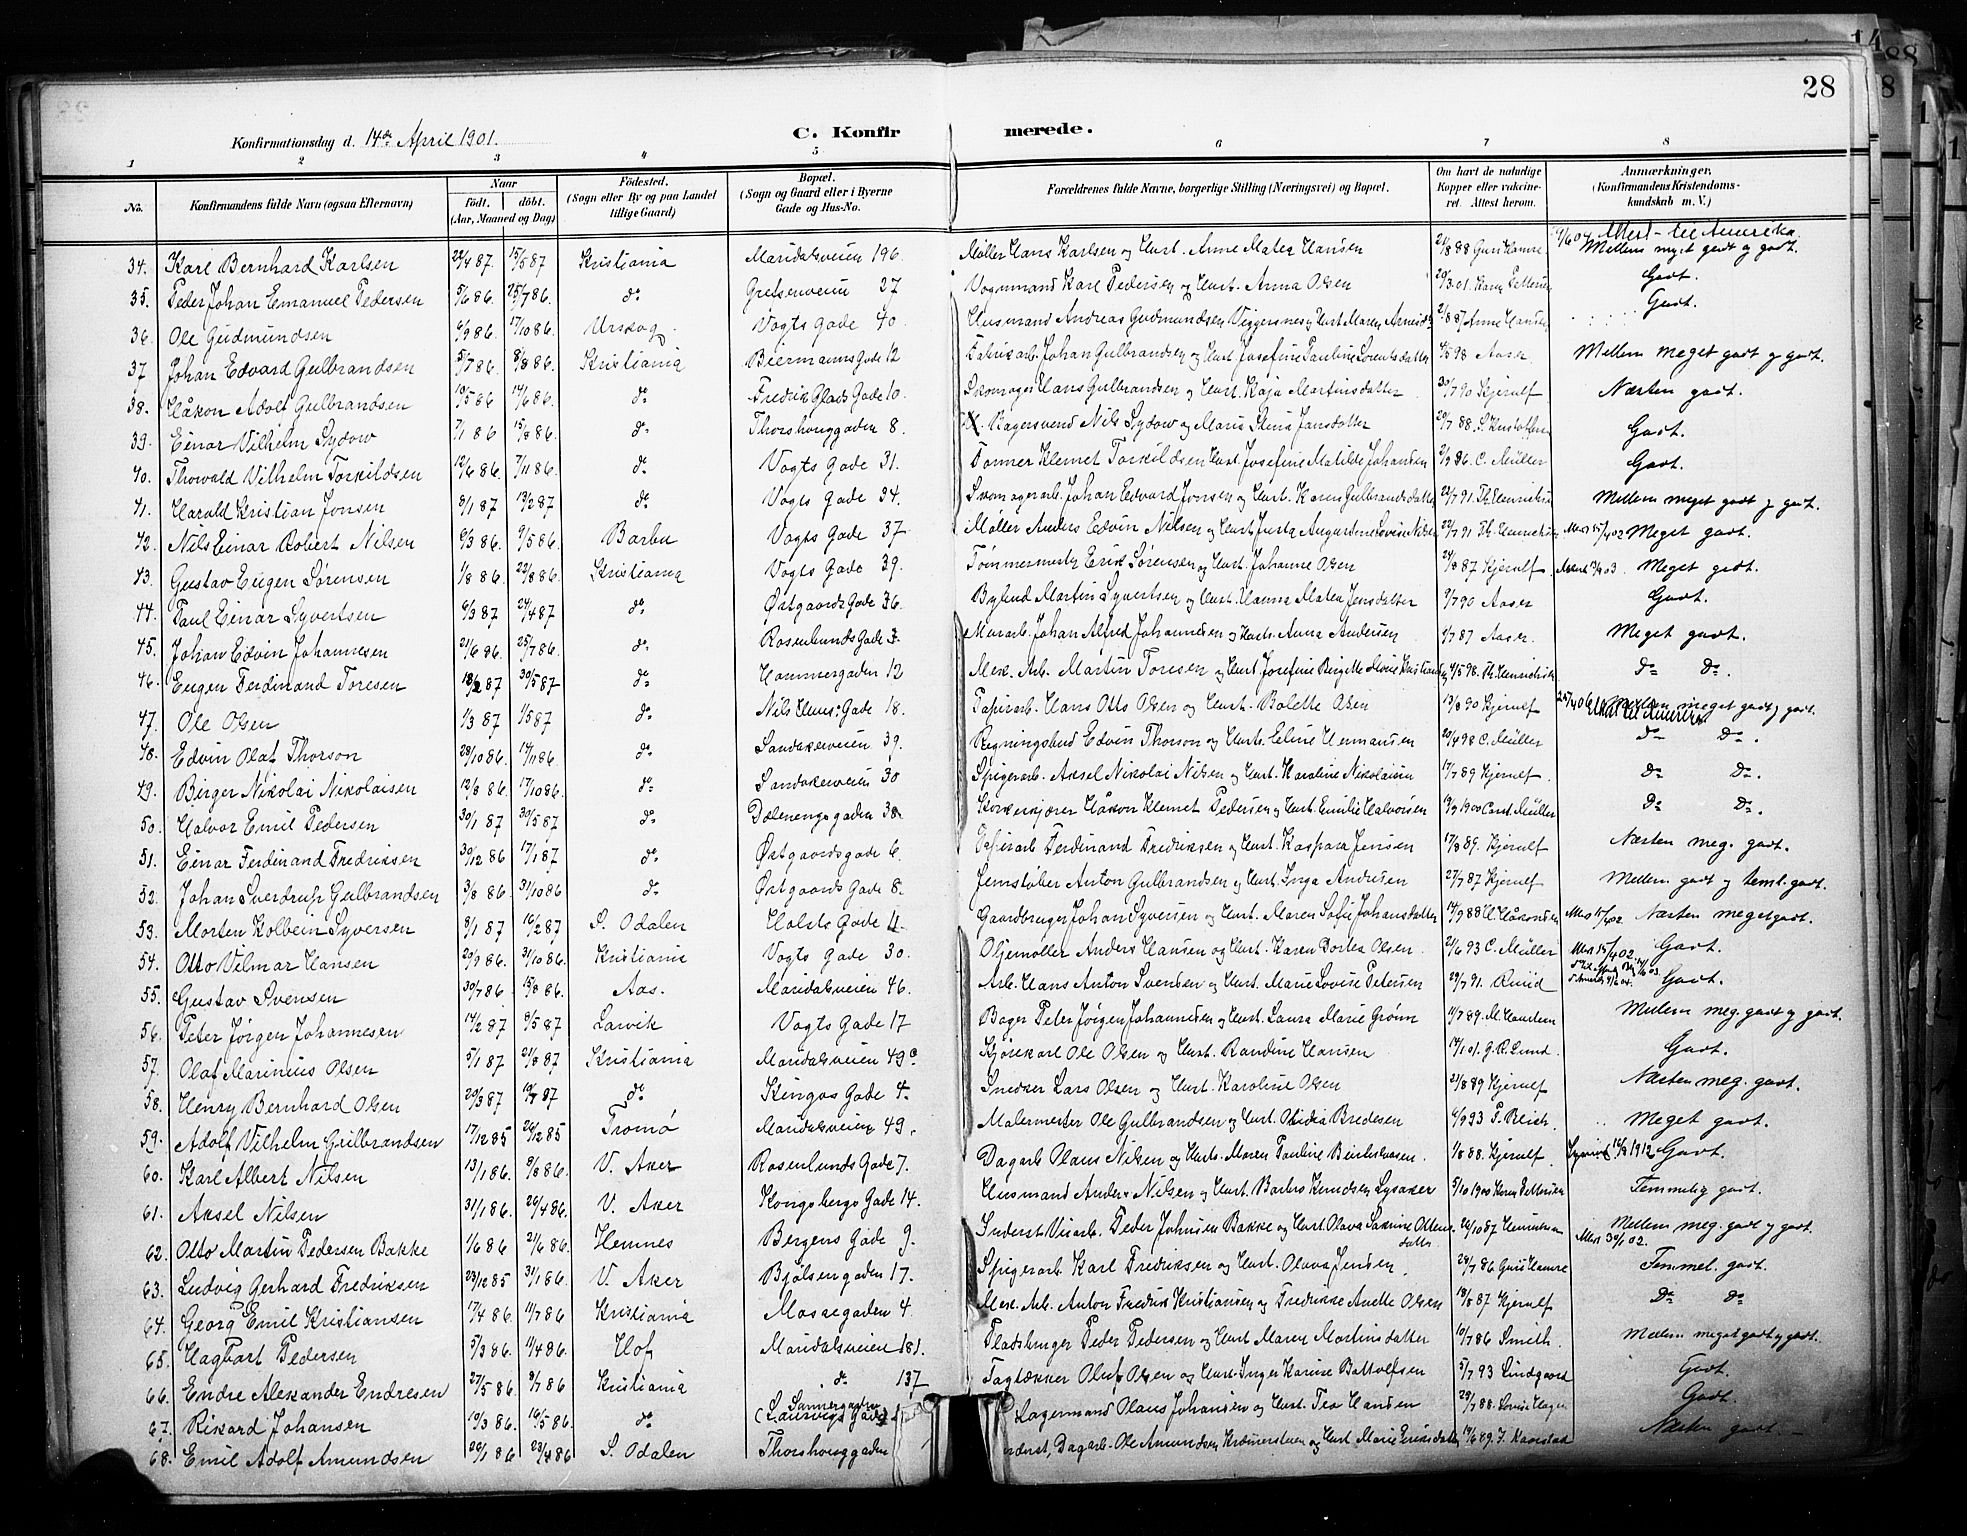 28
Konfirmationsdag d. 14de April 1901.
C. Konfirmerede.
1 2 3 4 5 6 7 8
No. Konfirmandens fulde Navn (ogsaa Efternavn) Naar født. døbt. (Aar, Maaned og Dag) Fødested. (Sogn eller By og paa Landet tillige Gaard) Bopæl. (Sogn og Gaard eller i Byerne Gade og Hus-No. Forældrenes fulde Navne, borgerlige Stilling (Næringsvei) og Bopæl. Om havt de naturlige Kopper eller vaccineret. Attest herom. Anmærkninger. (Konfirmandens Kristendomskundskab m. V.)
34. Karl Bernhard Karlsen 22/4 87. 15/5 87 Kristiania Maridalsveien 196. Møller Hans Karlsen og Hust. Anne Mathea Hansen Attest til Amerika Mellem meget godt og godt.
35. Peder Johan Emanuel Pedersen 5/6 86. 25/7 86. do Grefsenveien 27 Vognmand Karl Pedersen og Hust. Anna Olsen Godt.
36. Ole Gudmundsen 6/9 86. 17/10 86. Urskog. Vogts Gade 40. Husmand Andreas Gudmundsen Godt.
37 Johan Edvard Gulbrandsen 5/7 86. 8/8 86. Kristiania Biermanns Gade 12 Fabrikarb. Johan Gulbrandsen og Hust. Josefine Pauline 4/5 98 Aaser. Mellem meget godt og godt.
38. Håkon Adolf Gulbrandsen 10/5 86 14/6 86. do Fredrik Glads Gade 10. Skomager Hans Gulbrandsen og Hust. Kaja Martinsdatter 30/7 90 Kjerulf Næsten godt.
39. Einar Vilhelm Sydow 7/1 86 15/8 86. do Thorshauggaden 8. Bagersvend Nils Sydow og Marie Jansdatter Godt.
40. Thorvald Vilhelm Torkildsen 12/6 86. 7/11 86. do Vogts Gade 31. Former Klemet Torkildsen Hust. Josefine Matilde Johansen 2/9 86. C. Müller Godt.
41. Harald Kristian Jonsen 8/1 87 13/2 87 do Vogts Gade 34. Skomagerarb. Johan Edvard Jonsen og Hust. Karen Gulbrandsdatter Mellem meget godt og godt.
42. Nils Einar Robert Nilsen 6/3 86. 9/5 86. Barbu Vogts Gade 37 Møller Anders Edvin Nilsen og Hust. Meget godt.
43. Gustav Eugen Sørensen 1/8 86. 22/8 86. Kristiania Vogts Gade 39. Tømmermand Erik Sørensen og Hust. Johanne Olsen 24/8 87 Kjerulf. Meget godt.
44. Paul Einar Syvertsen 6/3 87 24/4 87 do Østgaards Gade 36. Bybud Martin Syvertsen og Hust. Hanna Mathea Jensdatter 9/7 90 Aaser Godt.
45. Johan Edvin Johannesen 21/6 86. 25/7 86. do Rosenlunds Gade 3. Murarb. Johan Alfred Johannesen og Hust. Anna Andersen 4/7 87 Aaser. Meget godt.
46. Eugen Ferdinand Toresen 18/2 87 30/5 87 do Hammergaden 12 Mek. Arb. Martin Toresen og Hust. Josefine Birgitte do do.
47. Ole Olsen 1/3 87 1/5 87 do Gade 18. Papirarb. Hans Otto Olsen og Hust. Bolette Olsen 13/8 90 Kjerulf Mellem meget godt og godt. Attest til Amerika
48. Edvin Olaf Thorson 28/10 86. 14/11 86. do Sandakerveien 39. Regningsbud Edvin Thorson og Hust. Eline Hermansen 20/4 98 C. Müller do do.
49. Birger Nikolai Nikolaisen 12/8 86. 17/10 86. do Sandakerveien 30 Spigerarb. Aksel Nikolai Nilsen og Hust. Karoline Nikolaisen 17/7 89 Kjerulf. do do.
50. Halvor Emil Pedersen 30/1 87 30/5 87 do Dælenenggaden 38. Korkskjærer Håkon Klemet Pedersen og Hust. Emilie Halvorsen 19/9 1900 Müller do do.
51. Einar Ferdinand Fredriksen 30/12 86 17/1 87 do Østgaardsgade 6. Papirarb Ferdinand Fredriksen og Hust. Kaspara Jensen 17/8 89. Kjerulf Næsten meg. godt.
52. Johan Sverdrup Gulbrandsen 3/8 86. 31/10 86 do Østgaards Gade 8. Jernstøber Anton Gulbrandsen og Hust. Inga Andresen 27/7 87 Kjerulf Mellem godt og teml. godt.
53. Morten Kolbein Syversen 8/1 87 16/2 87 S. Odalen Holsts Gade 4. Gaardbruger Johan Syversen og Hust. Maren Sofie Johansdatter Næsten meget godt.
54. Otto Vilmar Hansen 29/9 86. 31/10 86. Kristiania Vogts Gade 30. Oljemøller Anders Hansen og Hust. Karen Dortea Olsen. 21/6 93 C. Müller Godt.
55. Gustav Svensen 30/7 86. 15/8 86. Aas. Maridalsveien 46. Arb. Hans Anton Svensen og Hust. Marie Lovise Petersen 29/7 91. Ruud Godt.
56. Peter Jørgen Johannesen 14/2 87 9/5 87 Larvik Vogts Gade 17 Bager Peter Jørgen Johannesen og Hust. Laura Marie Grønn Mellem meg. godt og godt.
57. Olaf Marinius Olsen 5/1 87 21/8 87 Kristiania Maridalsveien 49c Kjørekarl Ole Olsen og Hust. Randine Hansen 14/1 01. G. R. Lund. Godt.
58. Henry Bernhard Olsen 20/3 87 do Kingos Gade 4. Snedker Lars Olsen og Hust. Karoline Olsen 21/8 89 Kjerulf Næsten meg. godt.
59. Adolf Vilhelm Gulbrandsen 17/12 85 26/12 85 Tromø Maridalsveien 49. Malermester Ole Gulbrandsen og Hust. Bredesen 6/9 93 P. Reich. Meget godt.
60. Karl Albert Nilsen 13/1 86. 9/8 86. V. Aker Rosenlunds Gade 7. Dagarb Olaus Nilsen og Hust. Maren Pauline 1/8 88. Kjerulf. 1912 Godt.
61. Aksel Nilsen 31/1 86. 26/4 86. V. Aker Kongsbergs Gade 14. Husmand Anders Nilsen og Hust. Barbro Knudsen Lysaker 5/10 1900 Karen Pettersen Temmelig godt.
62. Otto Martin Pedersen Bakke 1/6 86 21/6 86. Hemnes Bergens Gade 9. Peder Johnsen Bakke og Hust. Olava datter Mellem meg. godt og godt.
63. Ludvig Gerhard Fredriksen 23/12 85 31/1 86. V. Aker Bjølsengaden 17. Spigerarb. Karl Fredriksen og Hust. Olava Jensen. Temmel. godt.
64. Georg Emil Kristiansen 17/4 86. 11/7 86 Kristiania Mossegaden 4. Mek. Arb. Anton Fredrik Kristiansen og Fredrikke Anette Olsen 18/8 87 Kjerulf do do
65. Hagbart Pedersen 5/3 86. 11/4 86. Hof Maridalsveien 181. Pladsbruger Peder Pedersen og Hust. Maren Martinsdatter 10/7 86 Smith. Mellem meget godt og godt.
66. Endre Aleksander Endresen 27/5 86. 9/7 86 Kristiania do 137 Tagtækker Oluf Olsen og Hust. Inger Karine Bottolfsen 5/7 93 Lindgaard Godt.
67. Rikard Johansen 10/3 86. 16/5 86. do Sannergaden (Laurvigs Gade) Lagermand Olaus Johansen og Hust. Tea Hansen Godt.
68. Emil Adolf Amundsen 29/1 86 23/4 86 S. Odalen Thorshauggaden Dagarb. Ole Amundsen og Hust. Marie Næsten godt.